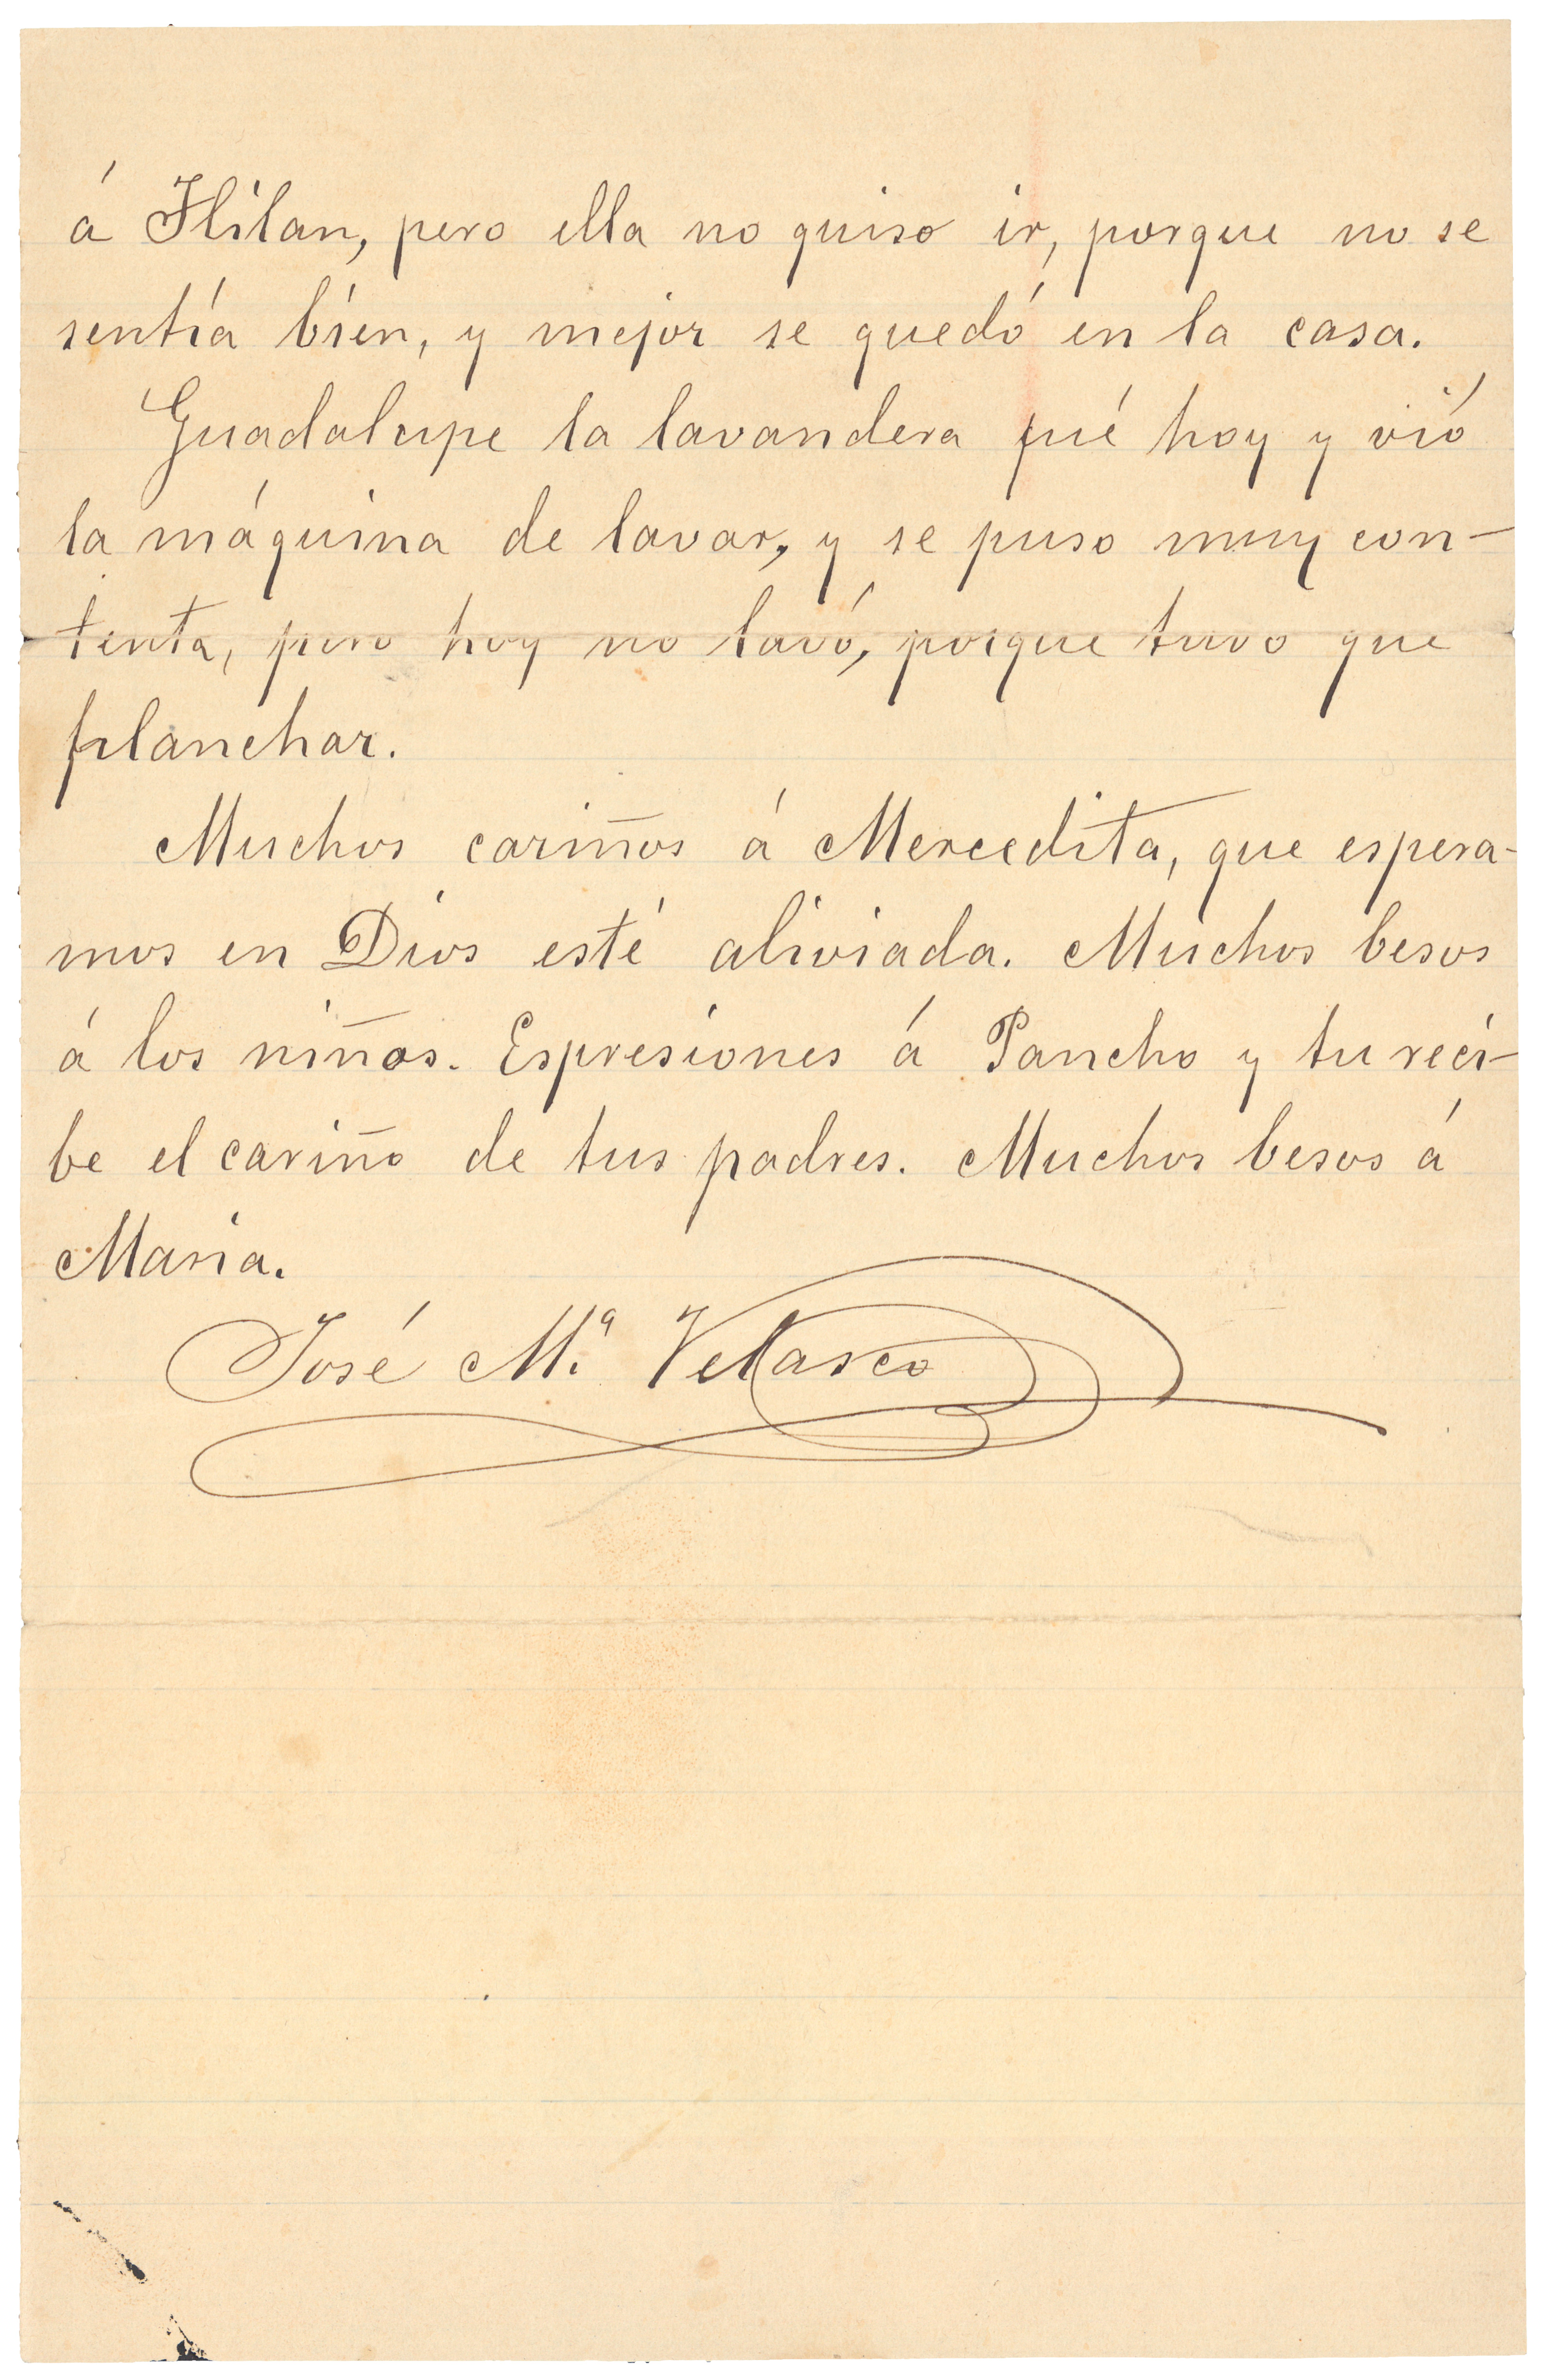 á Tlilan, pero ella no quiso ir, porque no se
sentía bien, y mejor se quedó en la casa.
Guadalupe la lavandera fué hoy y vió
la máquina de lavar, y se puso muy con-
tenta, pero hoy no lavó, porque tuvo que
planchar.
Muchos cariños á Mercedita, que espera-
mos en Dios esté aliviada. Muchos besos
á los niños. Espresiones á Pancho y tu reci-
be el cariño de tus padres. Muchos besos á
Maria.
José Mª. Velasco